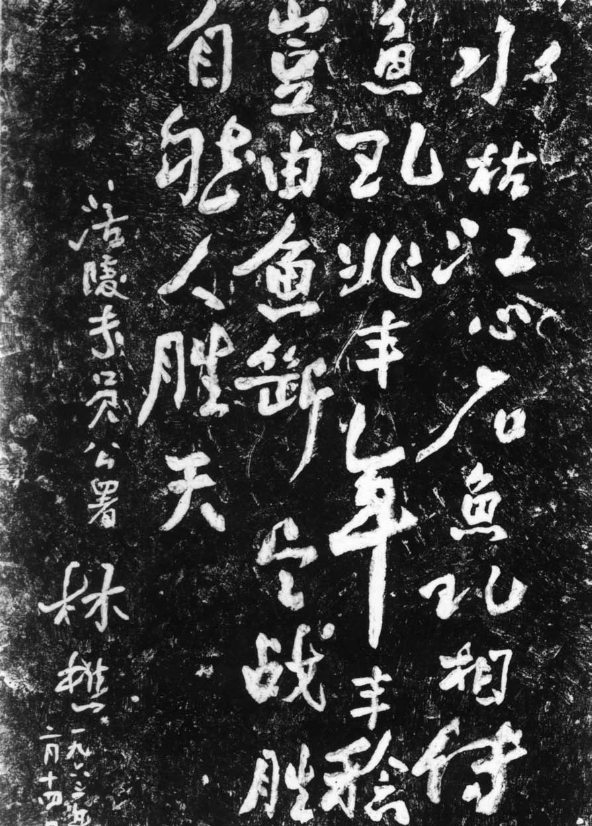 水枯江心石鱼现相传
鱼现兆丰年丰稔
豈由鱼断定战胜
自然人胜天
涪陵专员公署
林樵一九六三年
二月十四日